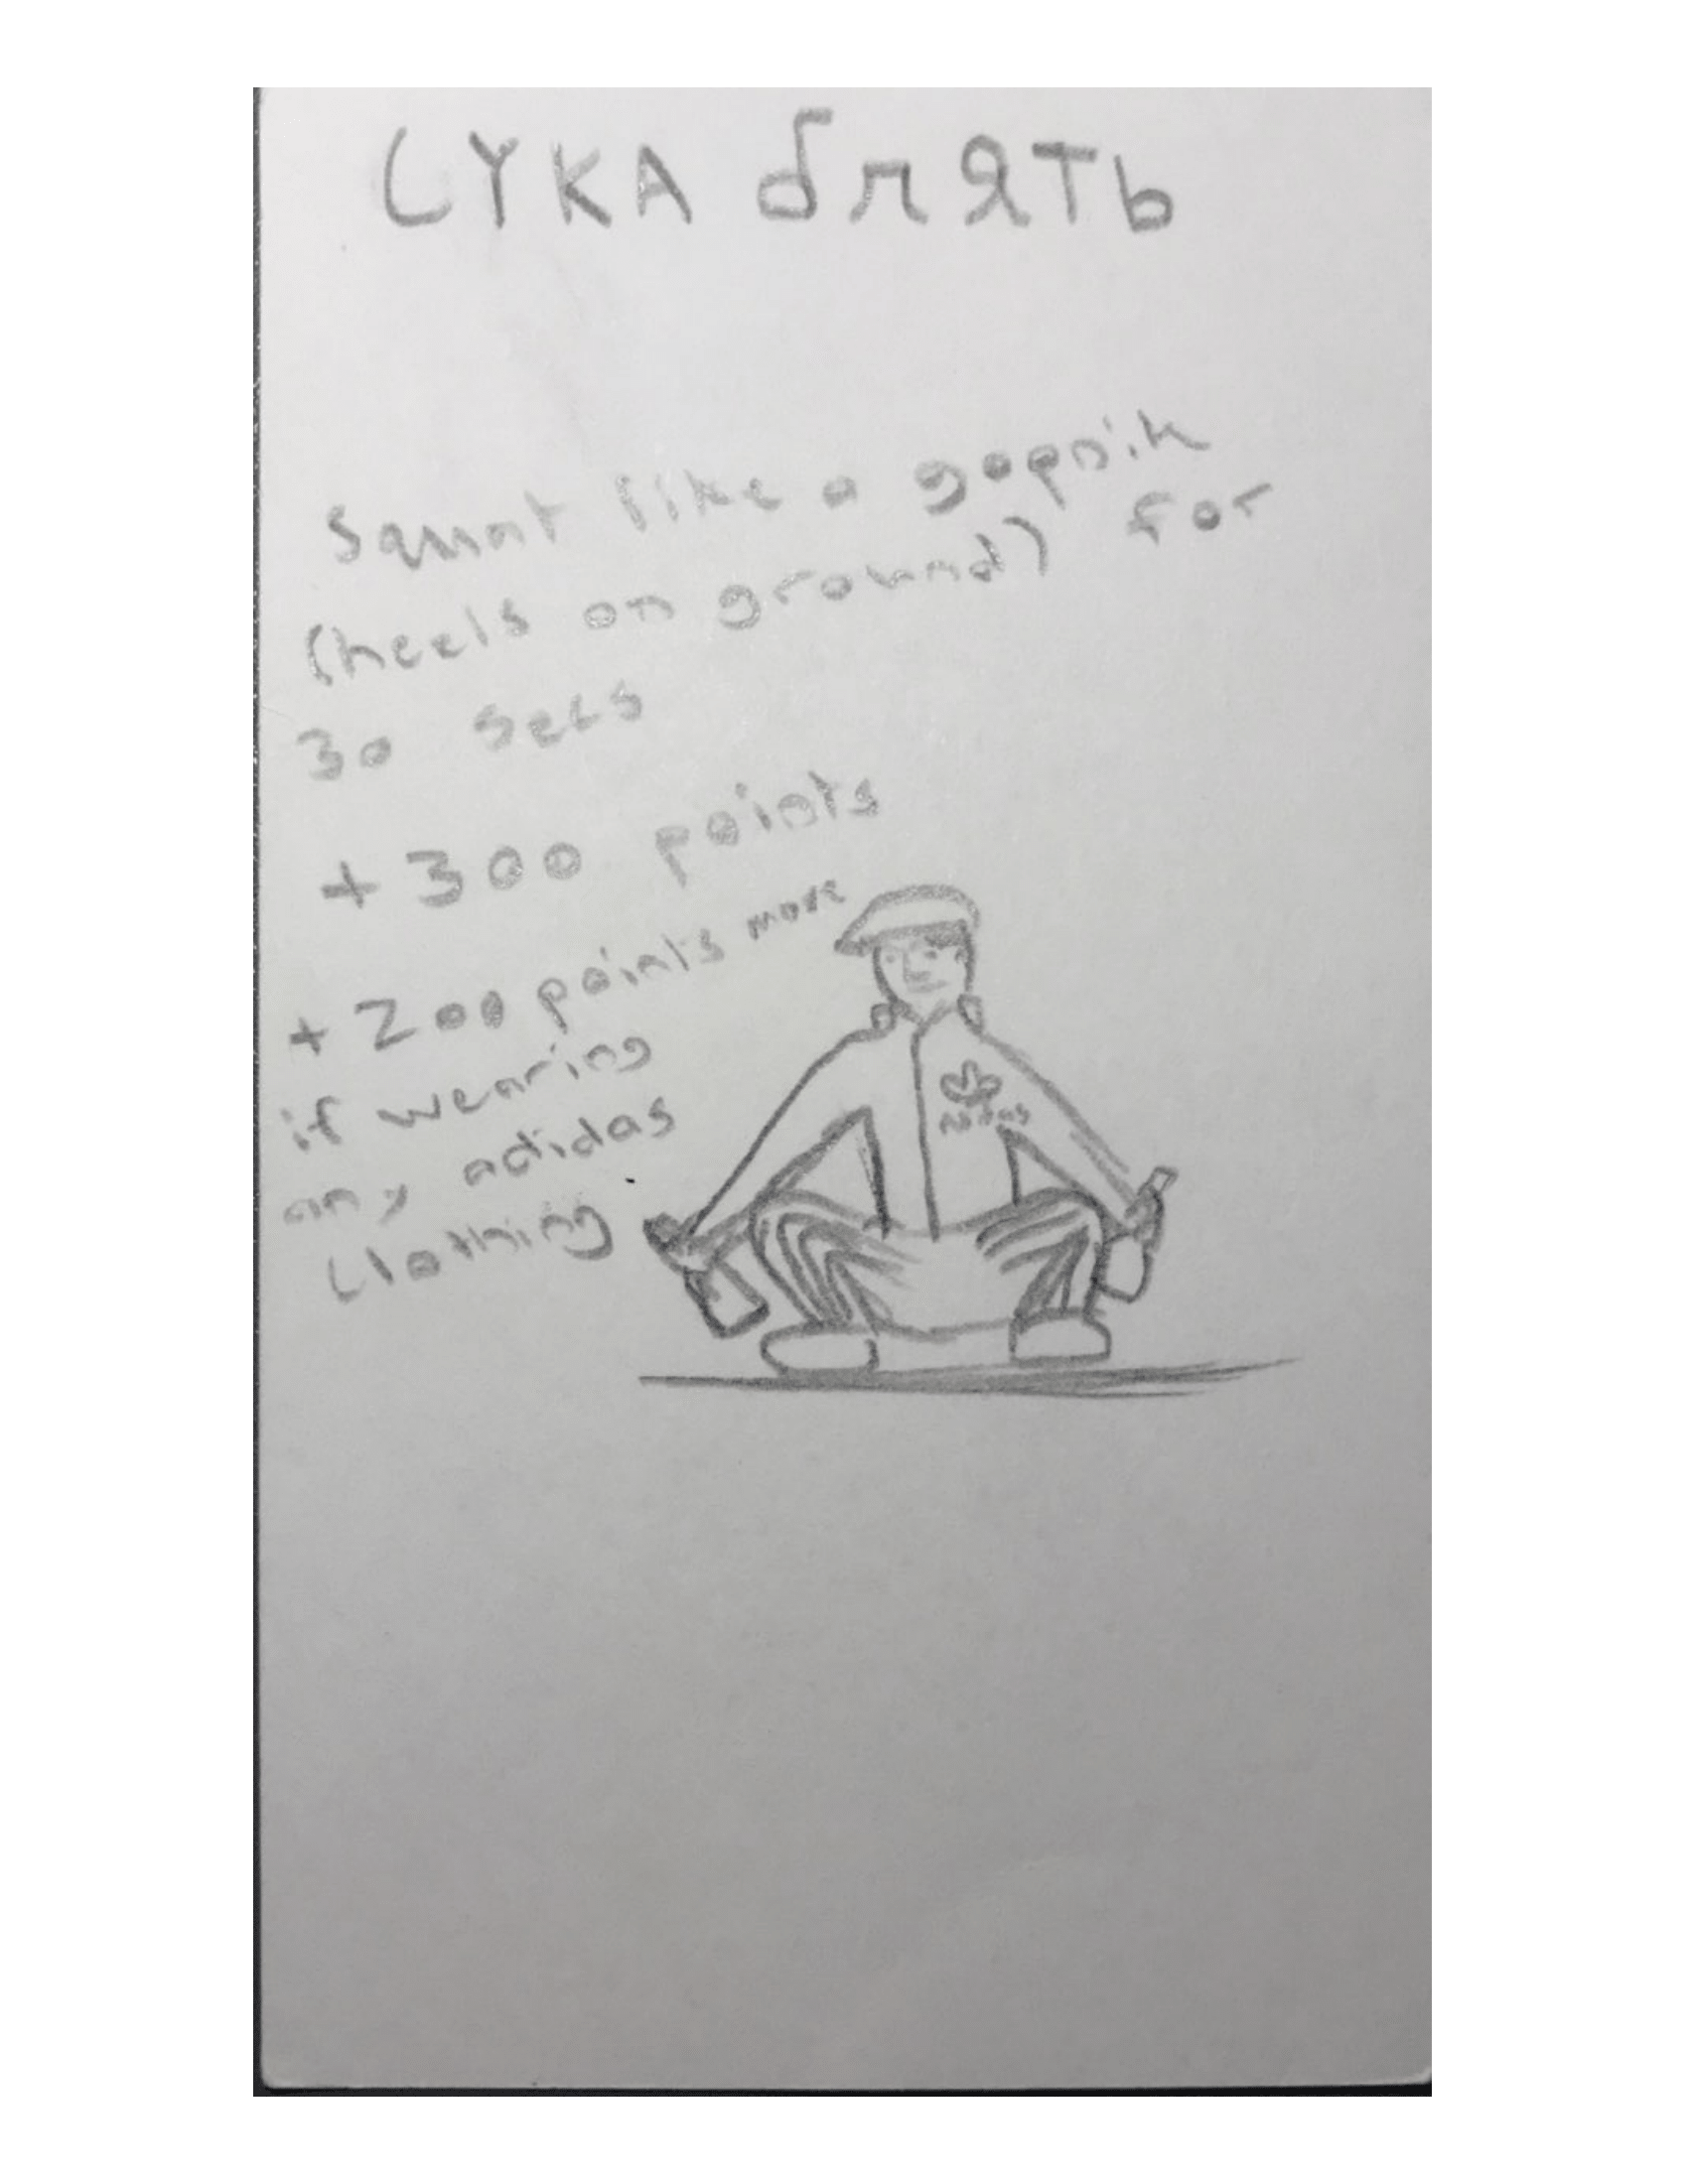 СУКА блять
Squat like a gopnik
(heels on ground) for
30 secs
+300 points
+200 points more
if wearing
any adidas
clothing
adidas